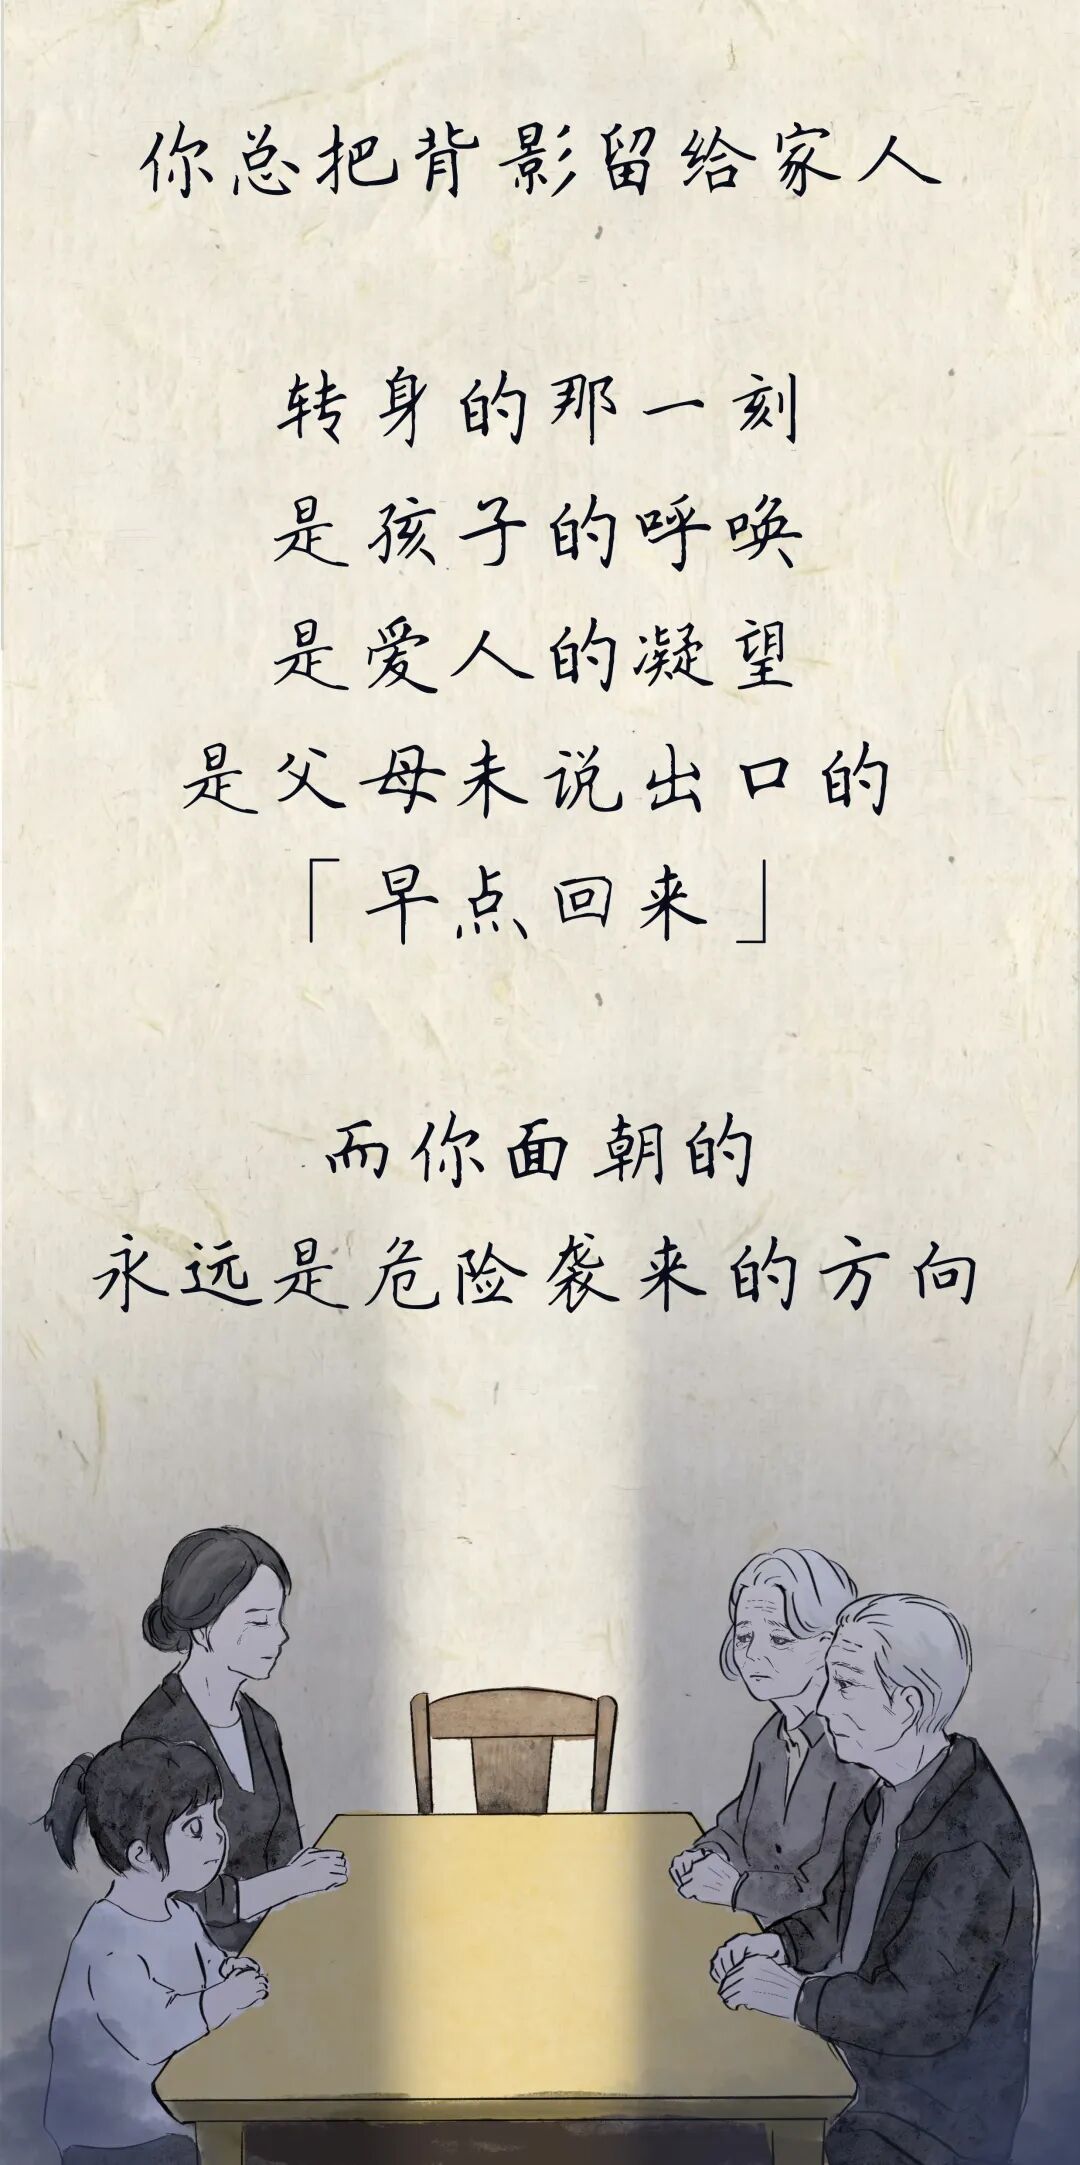 你总把背影留给家人
转身的那一刻
是孩子的呼唤
是爱人的凝望
是父母未说出口的
「早点回来」
而你面朝的
永远是危险袭来的方向